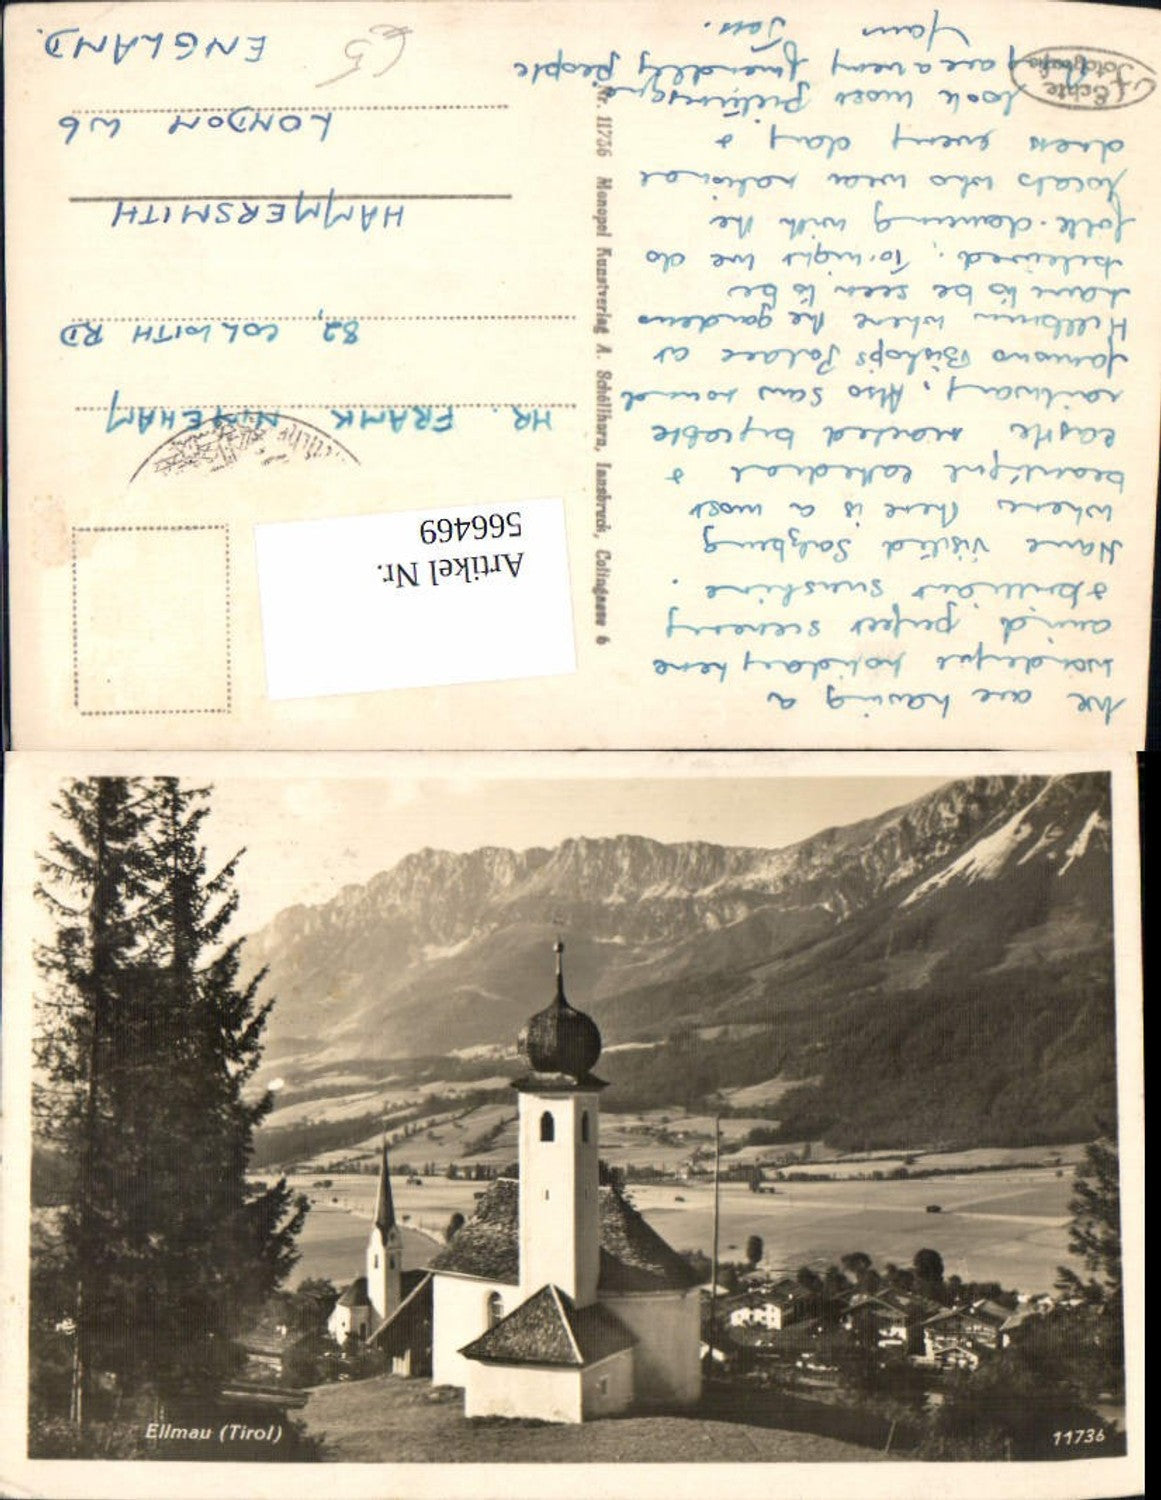 We are having a
wonderful holiday here
amid perfect scenery
& brilliant sunshine.
Have visited Salzburg
where there is a most
beautiful cathedral &
castle reached by cable
railway. Also saw round
famous Bishop's Palace at
Hellbrunn where the gardens
have to be seen to be
believed. To-night we do
folk-dancing with the
locals who wear national
dress every day &
look most picturesque
They are a very friendly people
Yours
Echte
Fotografie
Nr. 11736 Monopol Kunstverlag A. Schöllhorn, Innsbruck, Colingasse 6
Artikel Nr.
566469
MR. FRANK NINEHAM
82, COLWITH RD
HAMMERSMITH
LONDON W6
ENGLAND.
€5
Ellmau (Tirol)
11736